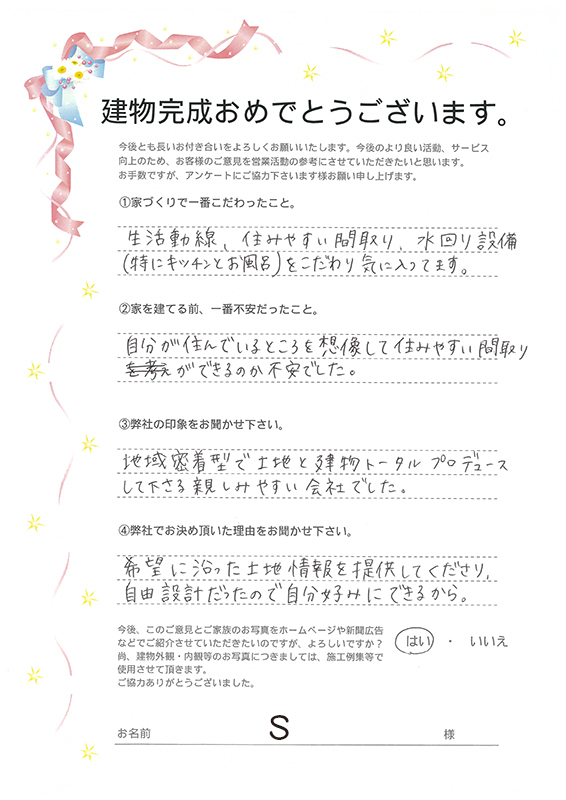 建物完成おめでとうございます。
今後とも長いお付き合いをよろしくお願いいたします。今後のより良い活動、サービス
向上のため、お客様のご意見を営業活動の参考にさせていただきたいと思います。
お手数ですが、アンケートにご協力下さいます様お願い申し上げます。
①家づくりで一番こだわったこと。
生活動線、住みやすい間取り、水回り設備
(特にキッチンとお風呂)をこだわり気に入ってます。
②家を建てる前、一番不安だったこと。
自分が住んでいるところを想像して住みやすい間取り
ができるのか不安でした。
③弊社の印象をお聞かせ下さい。
地域密着型で土地と建物トータルプロデュース
して下さる親しみやすい会社でした。
④弊社でお決め頂いた理由をお聞かせ下さい。
希望に沿った土地情報を提供してくださり、
自由設計だったので自分好みにできるから。
今後、このご意見とご家族のお写真をホームページや新聞広告
などでご紹介させていただきたいのですが、よろしいですか？
はい ・ いいえ
尚、建物外観・内観等のお写真につきましては、施工例集等で
使用させて頂きます。
ご協力ありがとうございました。
お名前 S 様